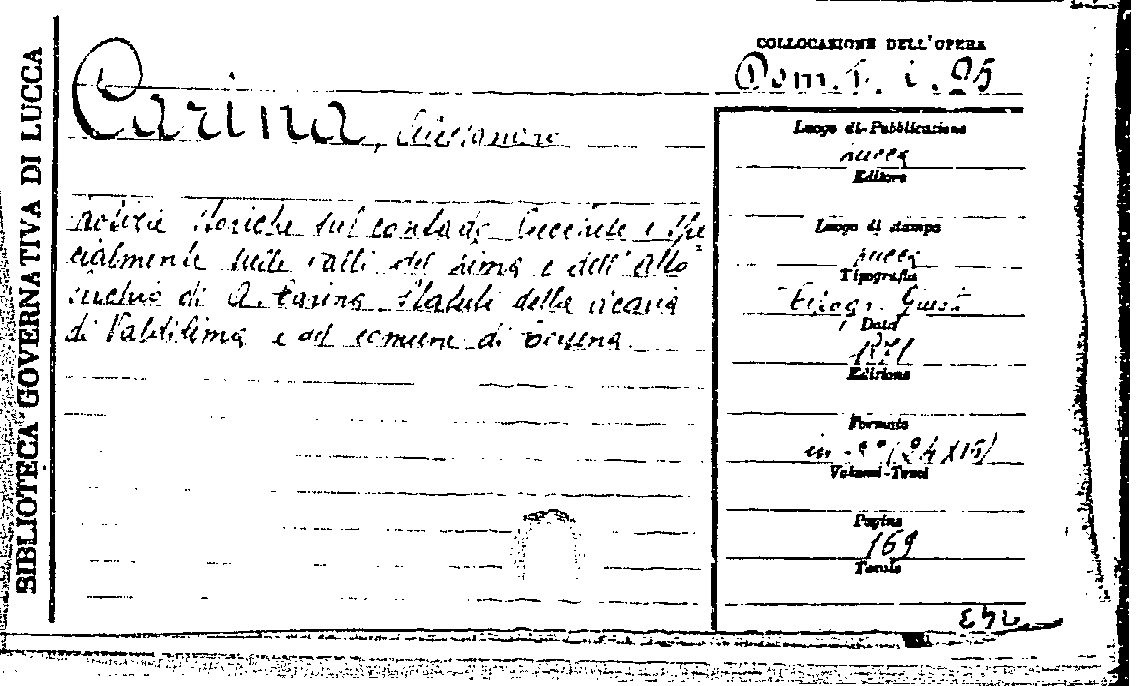 BIBLIOTECA GOVERNATIVA DI LUCCA
COLLOCAZIONE DELL'OPERA
Dom. T. i. 25
Carina, Alessandro
notizie storiche sul contado lucchese e spe
cialmente sulle valli del Lima e dell'alto
serchio di A. Carina Statuti della vicaria
di Valdilima e del comune di
Luogo di Pubblicazione
Lucca
Editore
Luogo di stampa
Lucca
Tipografia
Tipogr. Giusti
Data
1871
Edizione
Formato
in-8° (24X15)
Volumi-Tomi
Pagine
169
Tavole